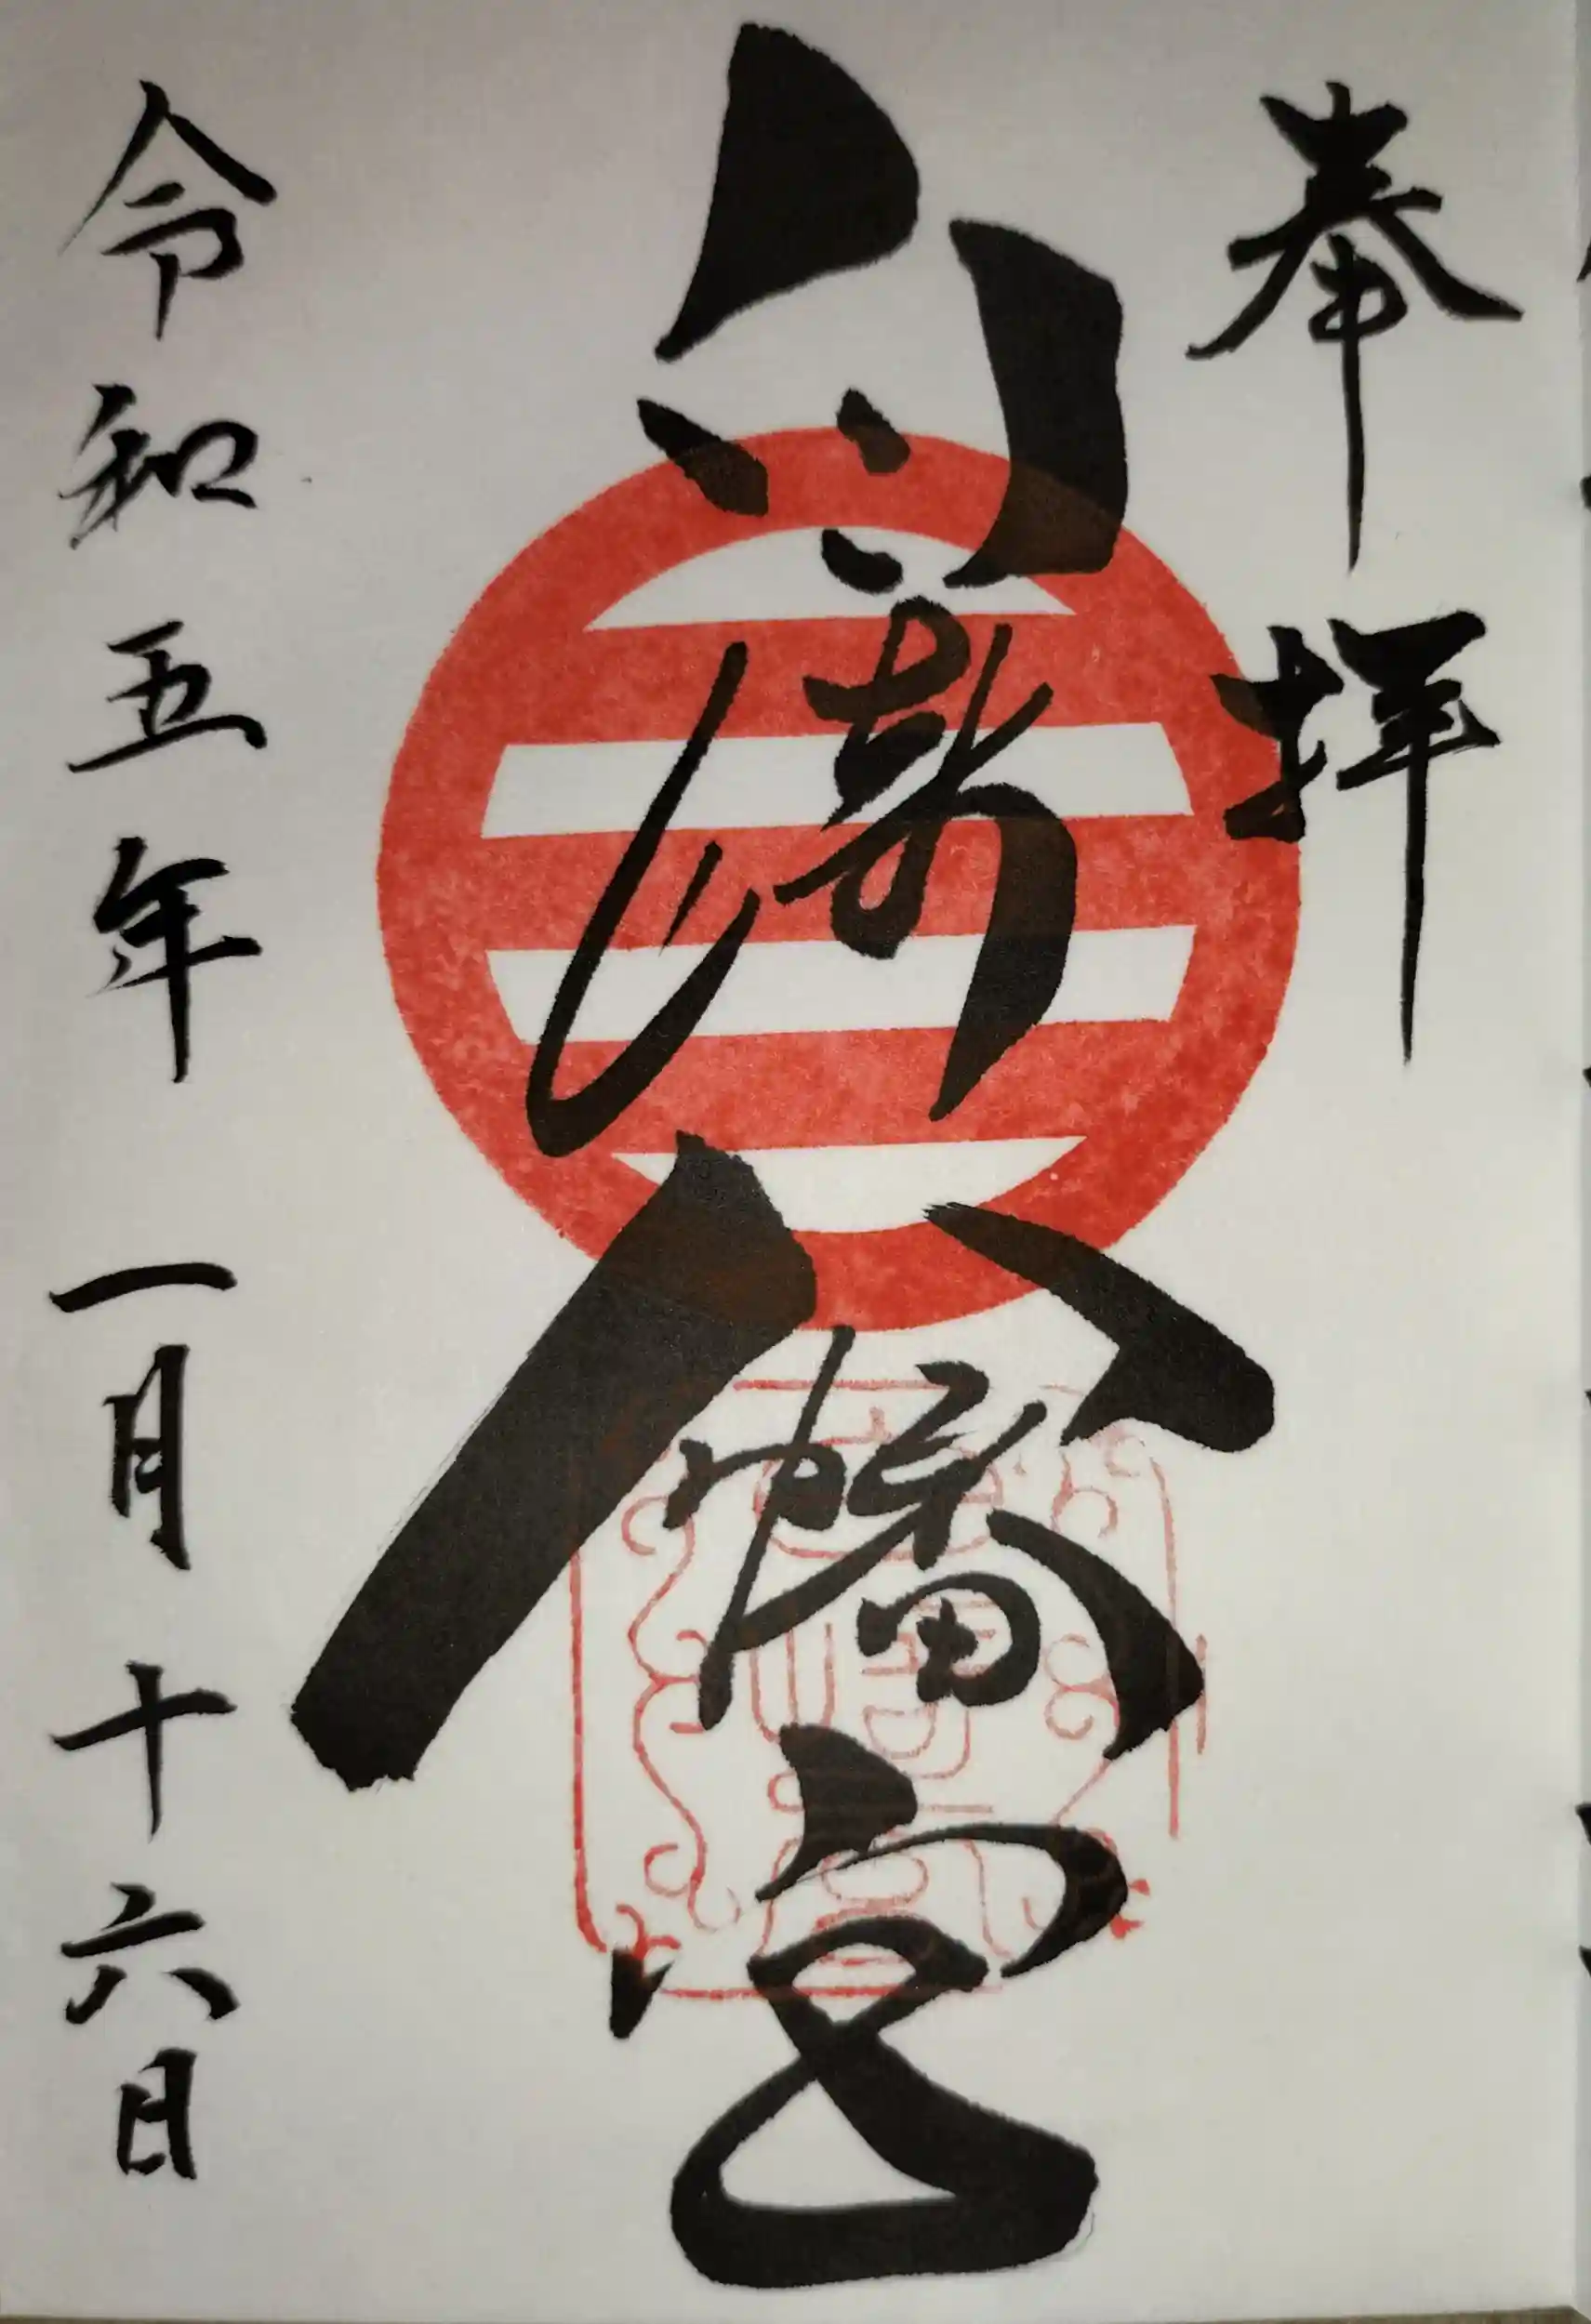 奉拝
八幡宮
令和五年 一月十六日